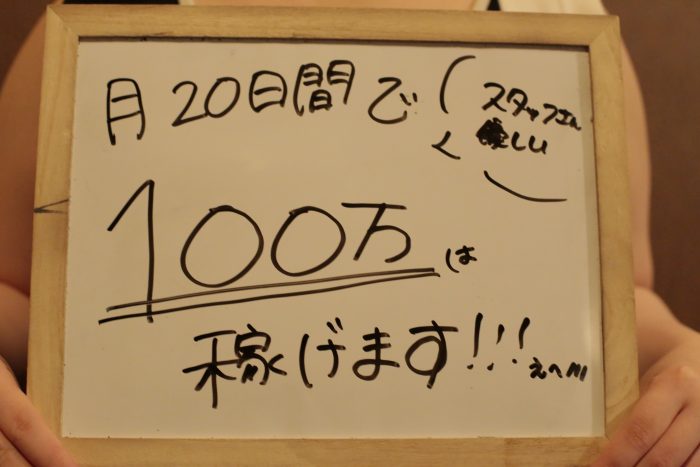 月20日間で
スタッフさん
優しい
100万は
稼げます!!!
えへ